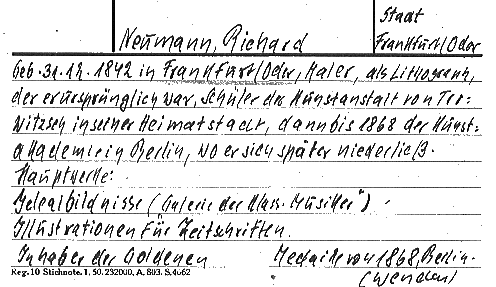 Staat
Neumann, Richard
Frankfurt/Oder
Geb. 31.12.1842 in Frankfurt/Oder, Maler, als Lithograph,
der er ursprünglich war, Schüler der Kunstanstalt von Tro-
witzsch in seiner Heimatstadt, dann bis 1868 der Kunst-
akademie in Berlin, wo er sich später niederließ.
Hauptwerke:
Idealbildnisse ("Galerie der klass. Musiker")
Illustrationen für Zeitschriften.
Inhaber der Goldenen Medaille von 1868, Berlin.
Reg. 10 Stichnote. 1, 50. 232000, A. 803. S. 4662
(Wenden)